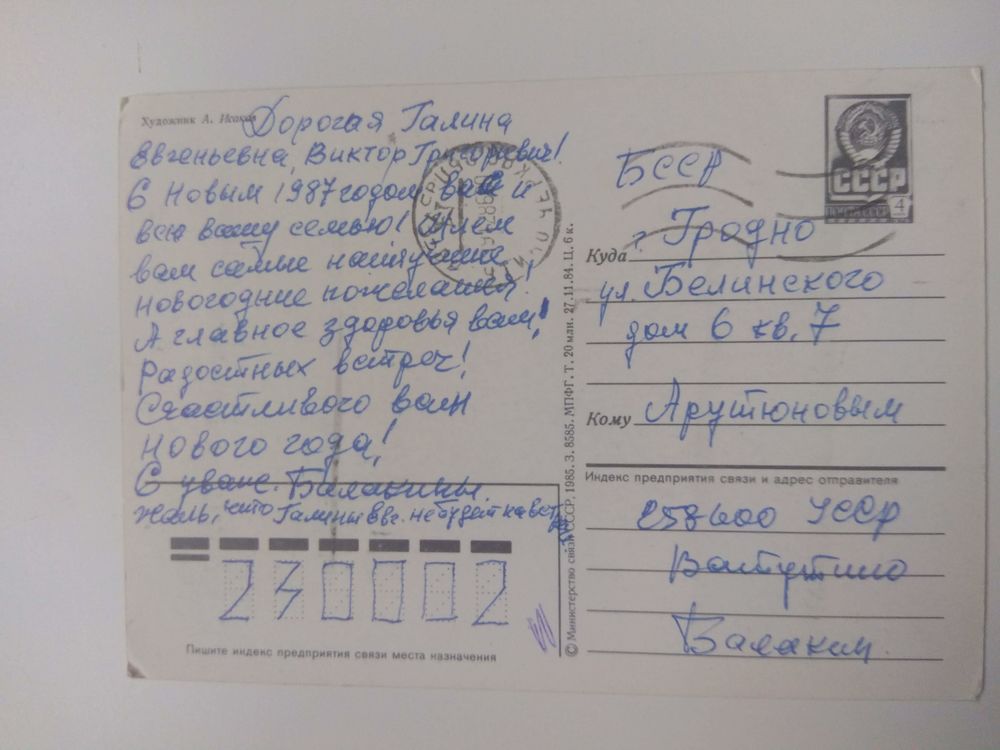 Художник А. Исаков
Дорогая Галина
Евгеньевна, Виктор Григорьевич!
С Новым 1987 годом вас и
всю вашу семью! Шлем
вам самые наилучшие
новогодние пожелания!
А главное здоровья вам!
Радостных встреч!
Счастливого вам
нового года!
С уваж. Балакины.
Жаль, что Галины Евг. не будет на вст
Пишите индекс предприятия связи места назначения
230002
© Министерство связи СССР, 1985. З. 8585. МПФГ. Т. 20 млн. 27.11.84. Ц. 6 к.
СССР
ПОЧТА СССР 4
БССР
Куда г. Гродно
ул. Белинского
дом 6 кв. 7
Кому Арутюновым
Индекс предприятия связи и адрес отправителя
258600 УССР
Ватутино
Балакин.